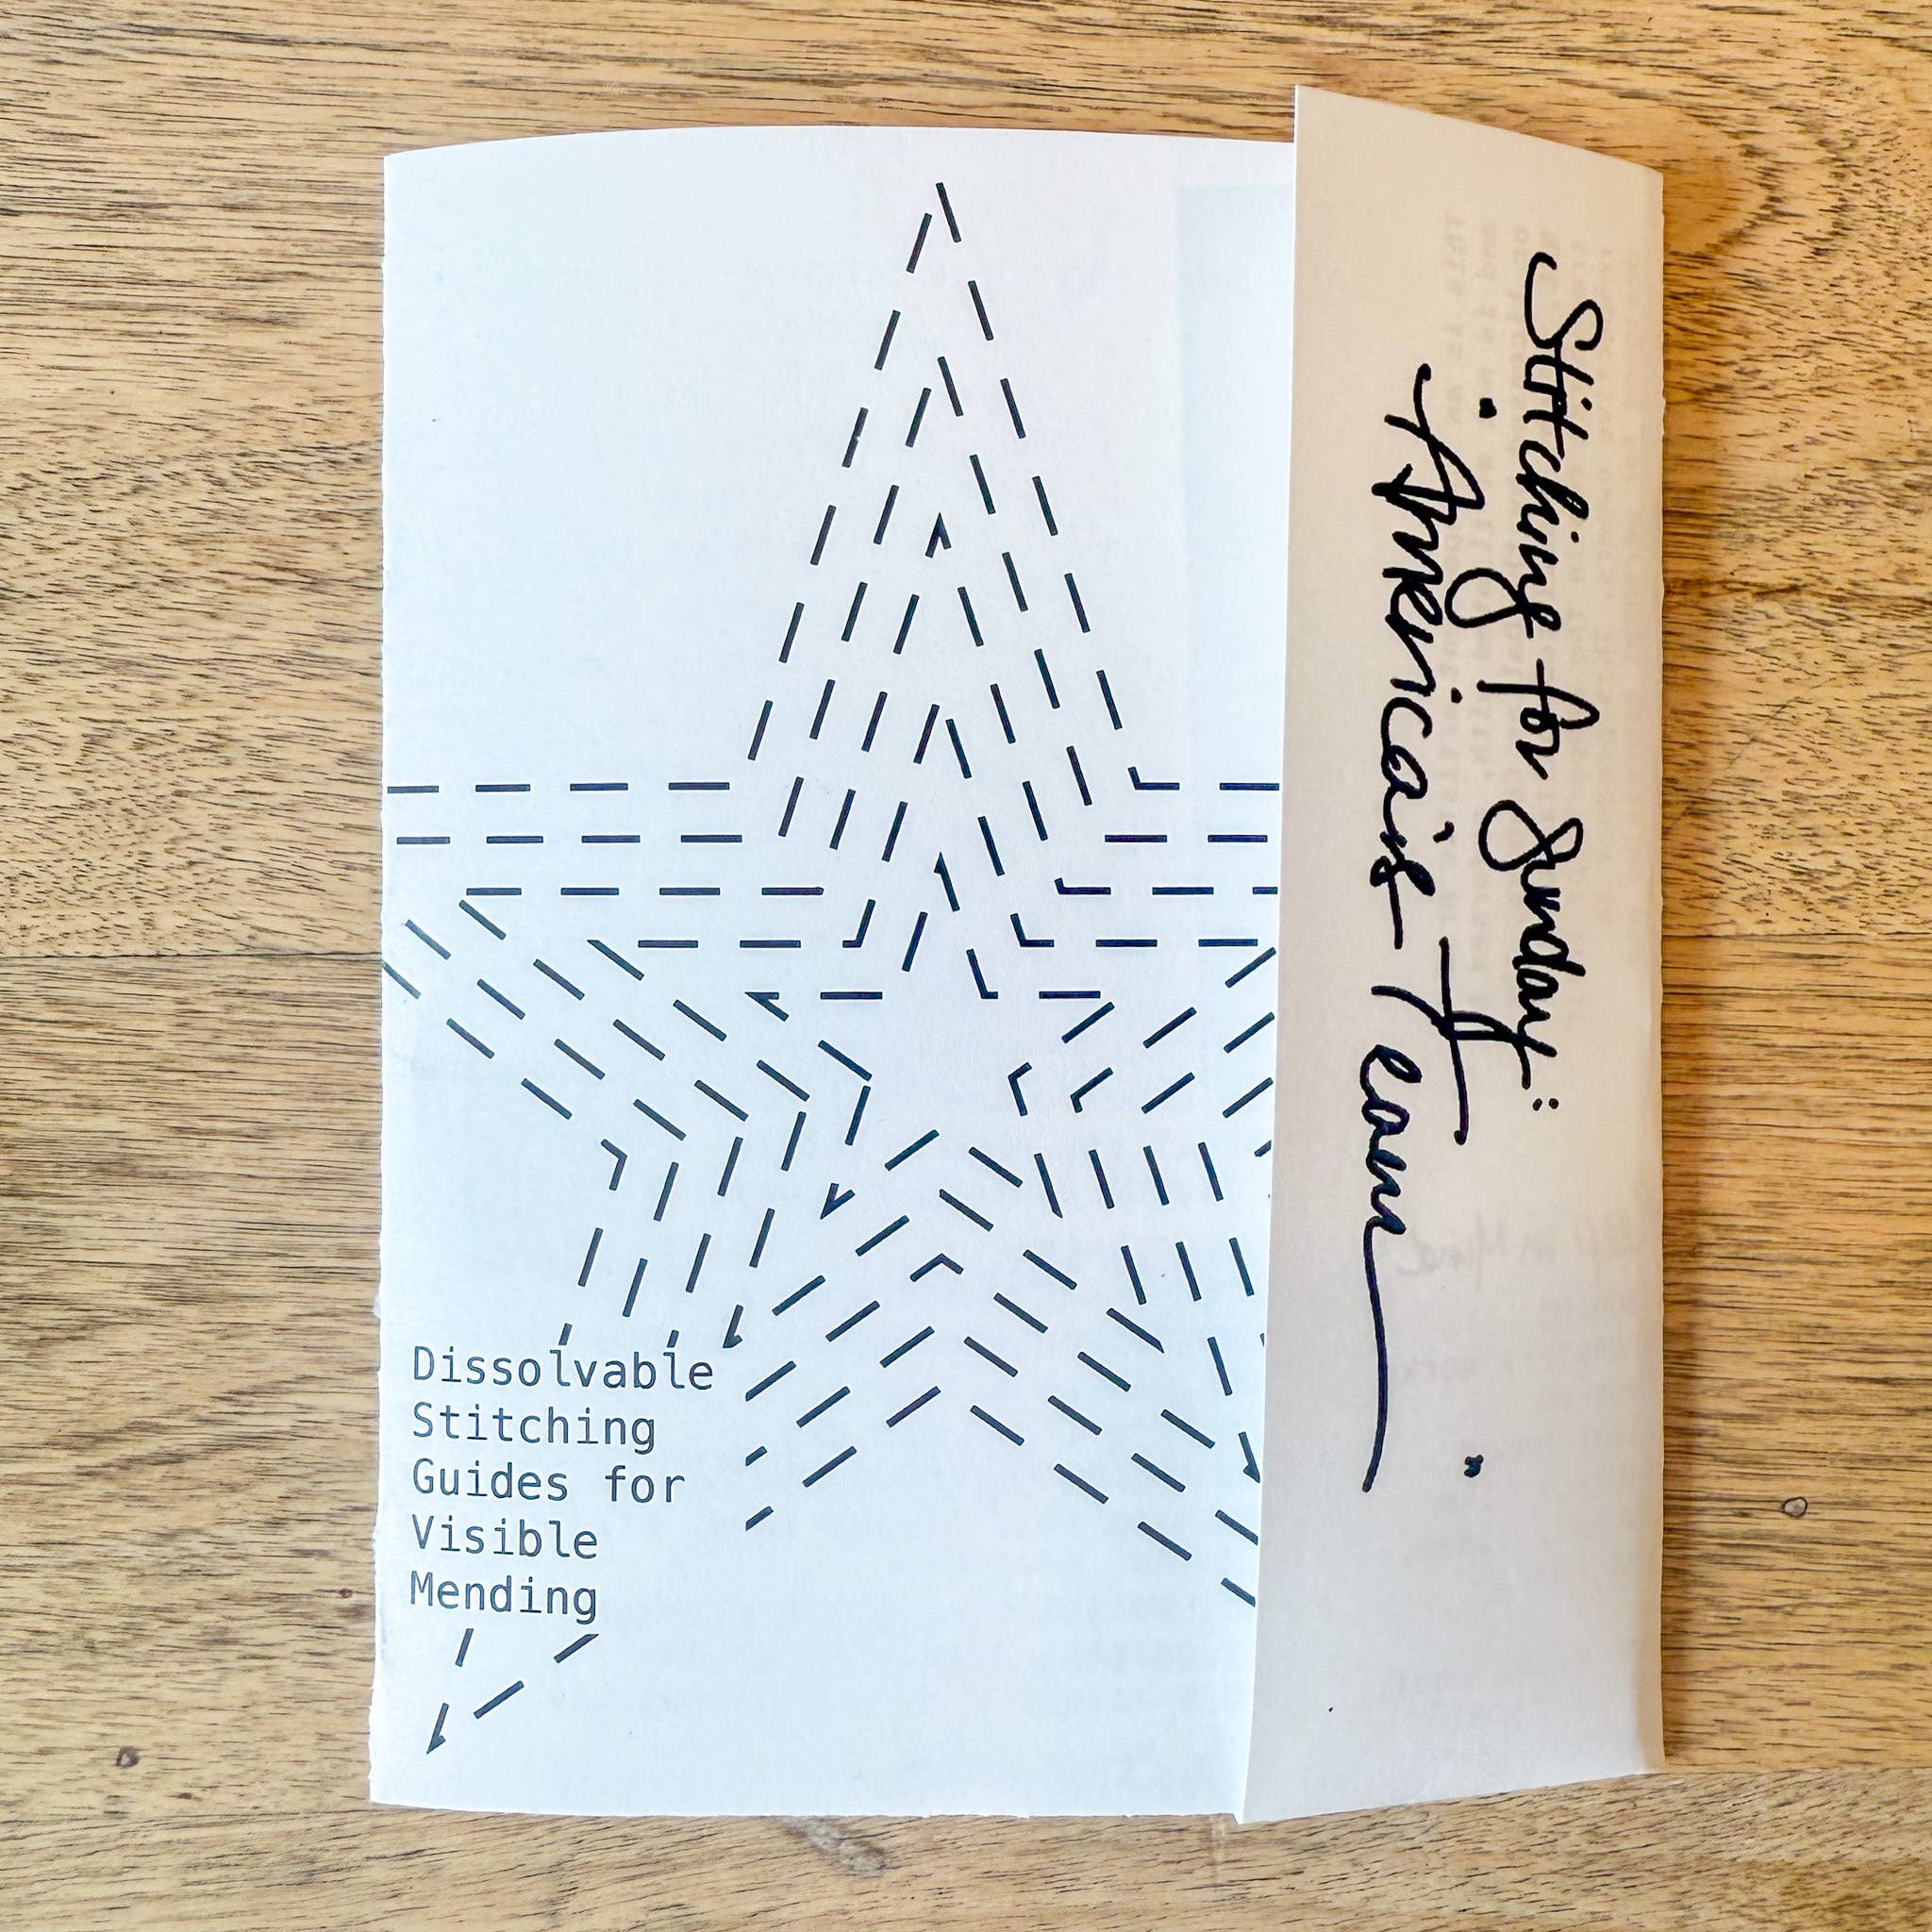 Dissolvable
Stitching
Guides for
Visible
Mending
Stitching for Sunday:
"America's Team"